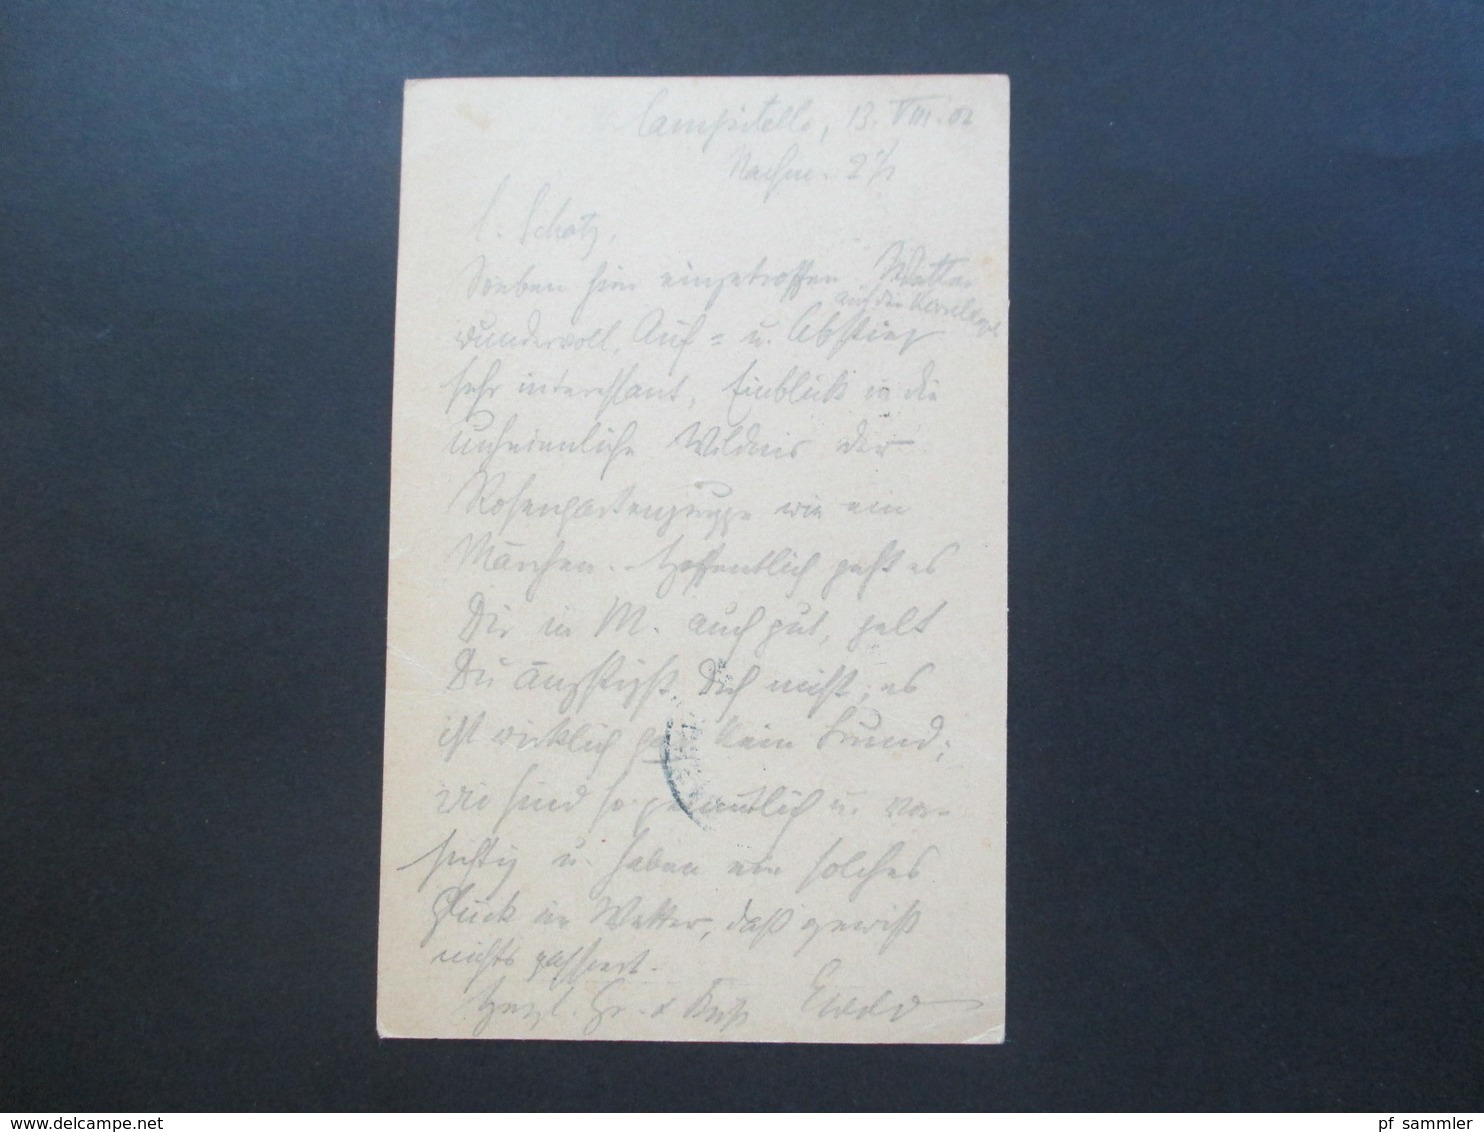 Campitello, 13. VIII. 02
Nachm. 2 1/2
l. Schatz,
Soeben hier eingetroffen. Wetter
wundervoll, Auf- u. Abstieg
auf den Kesselkogel
sehr interessant, Einblick in die
unheimliche Wildnis der
Rosengartengruppe wie ein
Märchen. Hoffentlich geht es
Dir in M. auch gut, gelt
Du ängstigst Dich nicht, es
ist wirklich gar kein Grund;
wir sind so u. vor-
sichtig u. haben ein solches
Glück im Wetter, daß gewiß
nichts passiert.
Herzl. Gr. & Kuß Ewald
pf_sammler
delcampe.net